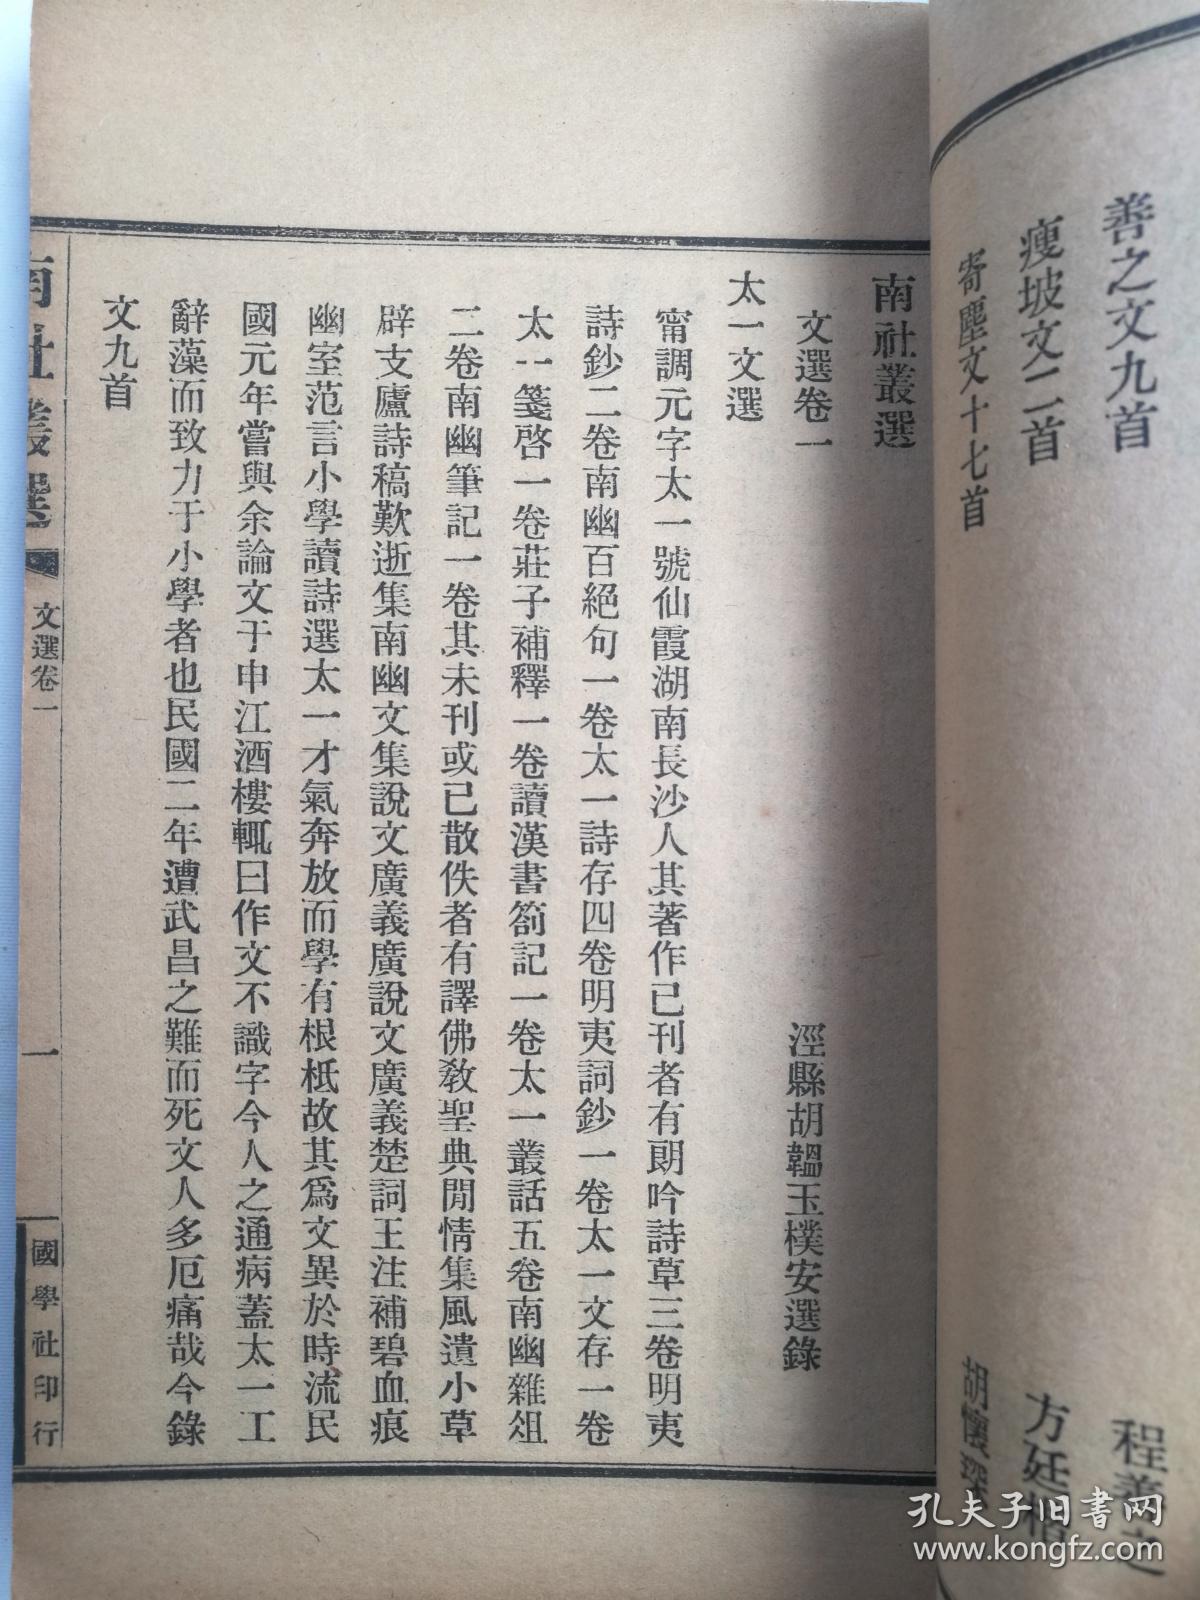 善之文九首　程善之
瘦坡文二首　方廷楷
寄塵文十七首　胡懷琛
南社叢選
文選卷一　涇縣胡韞玉樸安選錄
太一文選
甯調元字太一號仙霞湖南長沙人其著作已刊者有朗吟詩草三卷明夷
詩鈔二卷南幽百絕句一卷太一詩存四卷明夷詞鈔一卷太一文存一卷
太一箋啓一卷莊子補釋一卷讀漢書劄記一卷太一叢話五卷南幽雜俎
二卷南幽筆記一卷其未刊或已散佚者有譯佛敎聖典閒情集風遺小草
辟支廬詩稿歎逝集南幽文集說文廣義廣說文廣義楚詞王注補碧血痕
幽室范言小學讀詩選太一才氣奔放而學有根柢故其爲文異於時流民
國元年嘗與余論文于申江酒樓輒曰作文不識字今人之通病蓋太一工
辭藻而致力于小學者也民國二年遭武昌之難而死文人多厄痛哉今錄
文九首
南社叢選　文選卷一　一　國學社印行
孔夫子旧书网
www.kongfz.com